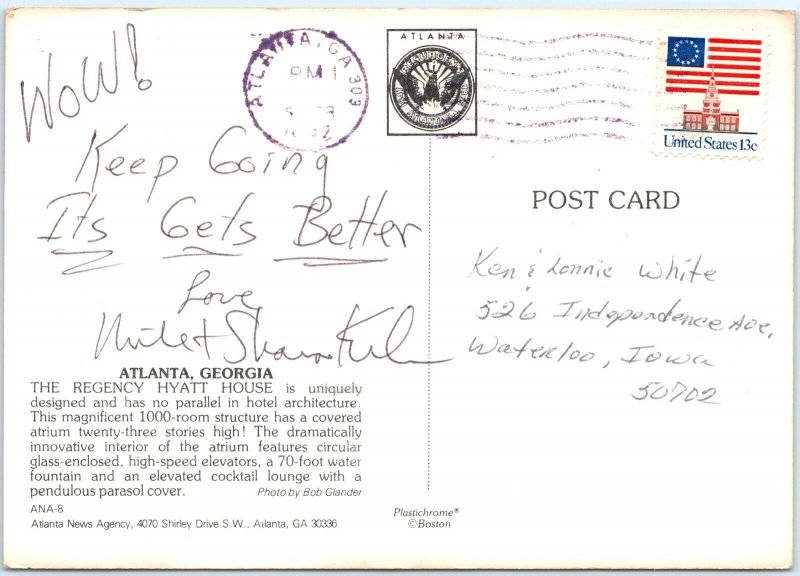 WOW!
Keep Going
Its Gets Better
Love
ATLANTA, GA 303
PM
ATLANTA
United States 13c
POST CARD
Ken & Lonnie White
526 Independence Ave,
Waterloo, Iowa
50702
ATLANTA, GEORGIA
THE REGENCY HYATT HOUSE is uniquely
designed and has no parallel in hotel architecture.
This magnificent 1000-room structure has a covered
atrium twenty-three stories high! The dramatically
innovative interior of the atrium features circular
glass-enclosed, high-speed elevators, a 70-foot water
fountain and an elevated cocktail lounge with a
pendulous parasol cover. Photo by Bob Glander
ANA-8
Atlanta News Agency, 4070 Shirley Drive S.W., Atlanta, GA 30336
Plastichrome®
©Boston